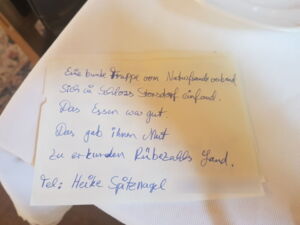 Eine bunte Truppe vom Naturfreundeverband
sich in Schloss Stonsdorf einfand.
Das Essen war gut.
Das gab ihnen Mut
zu erkunden Rübezahls Land.
Tel: Heike Spitznagel